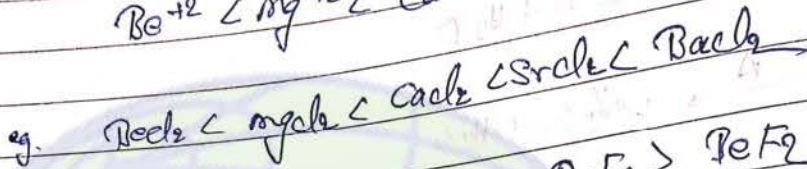 Be+2 < mg
eg. Becl2 < mgcl2 < Cacl2 < Srcl2 < Bacl2
> BeF2